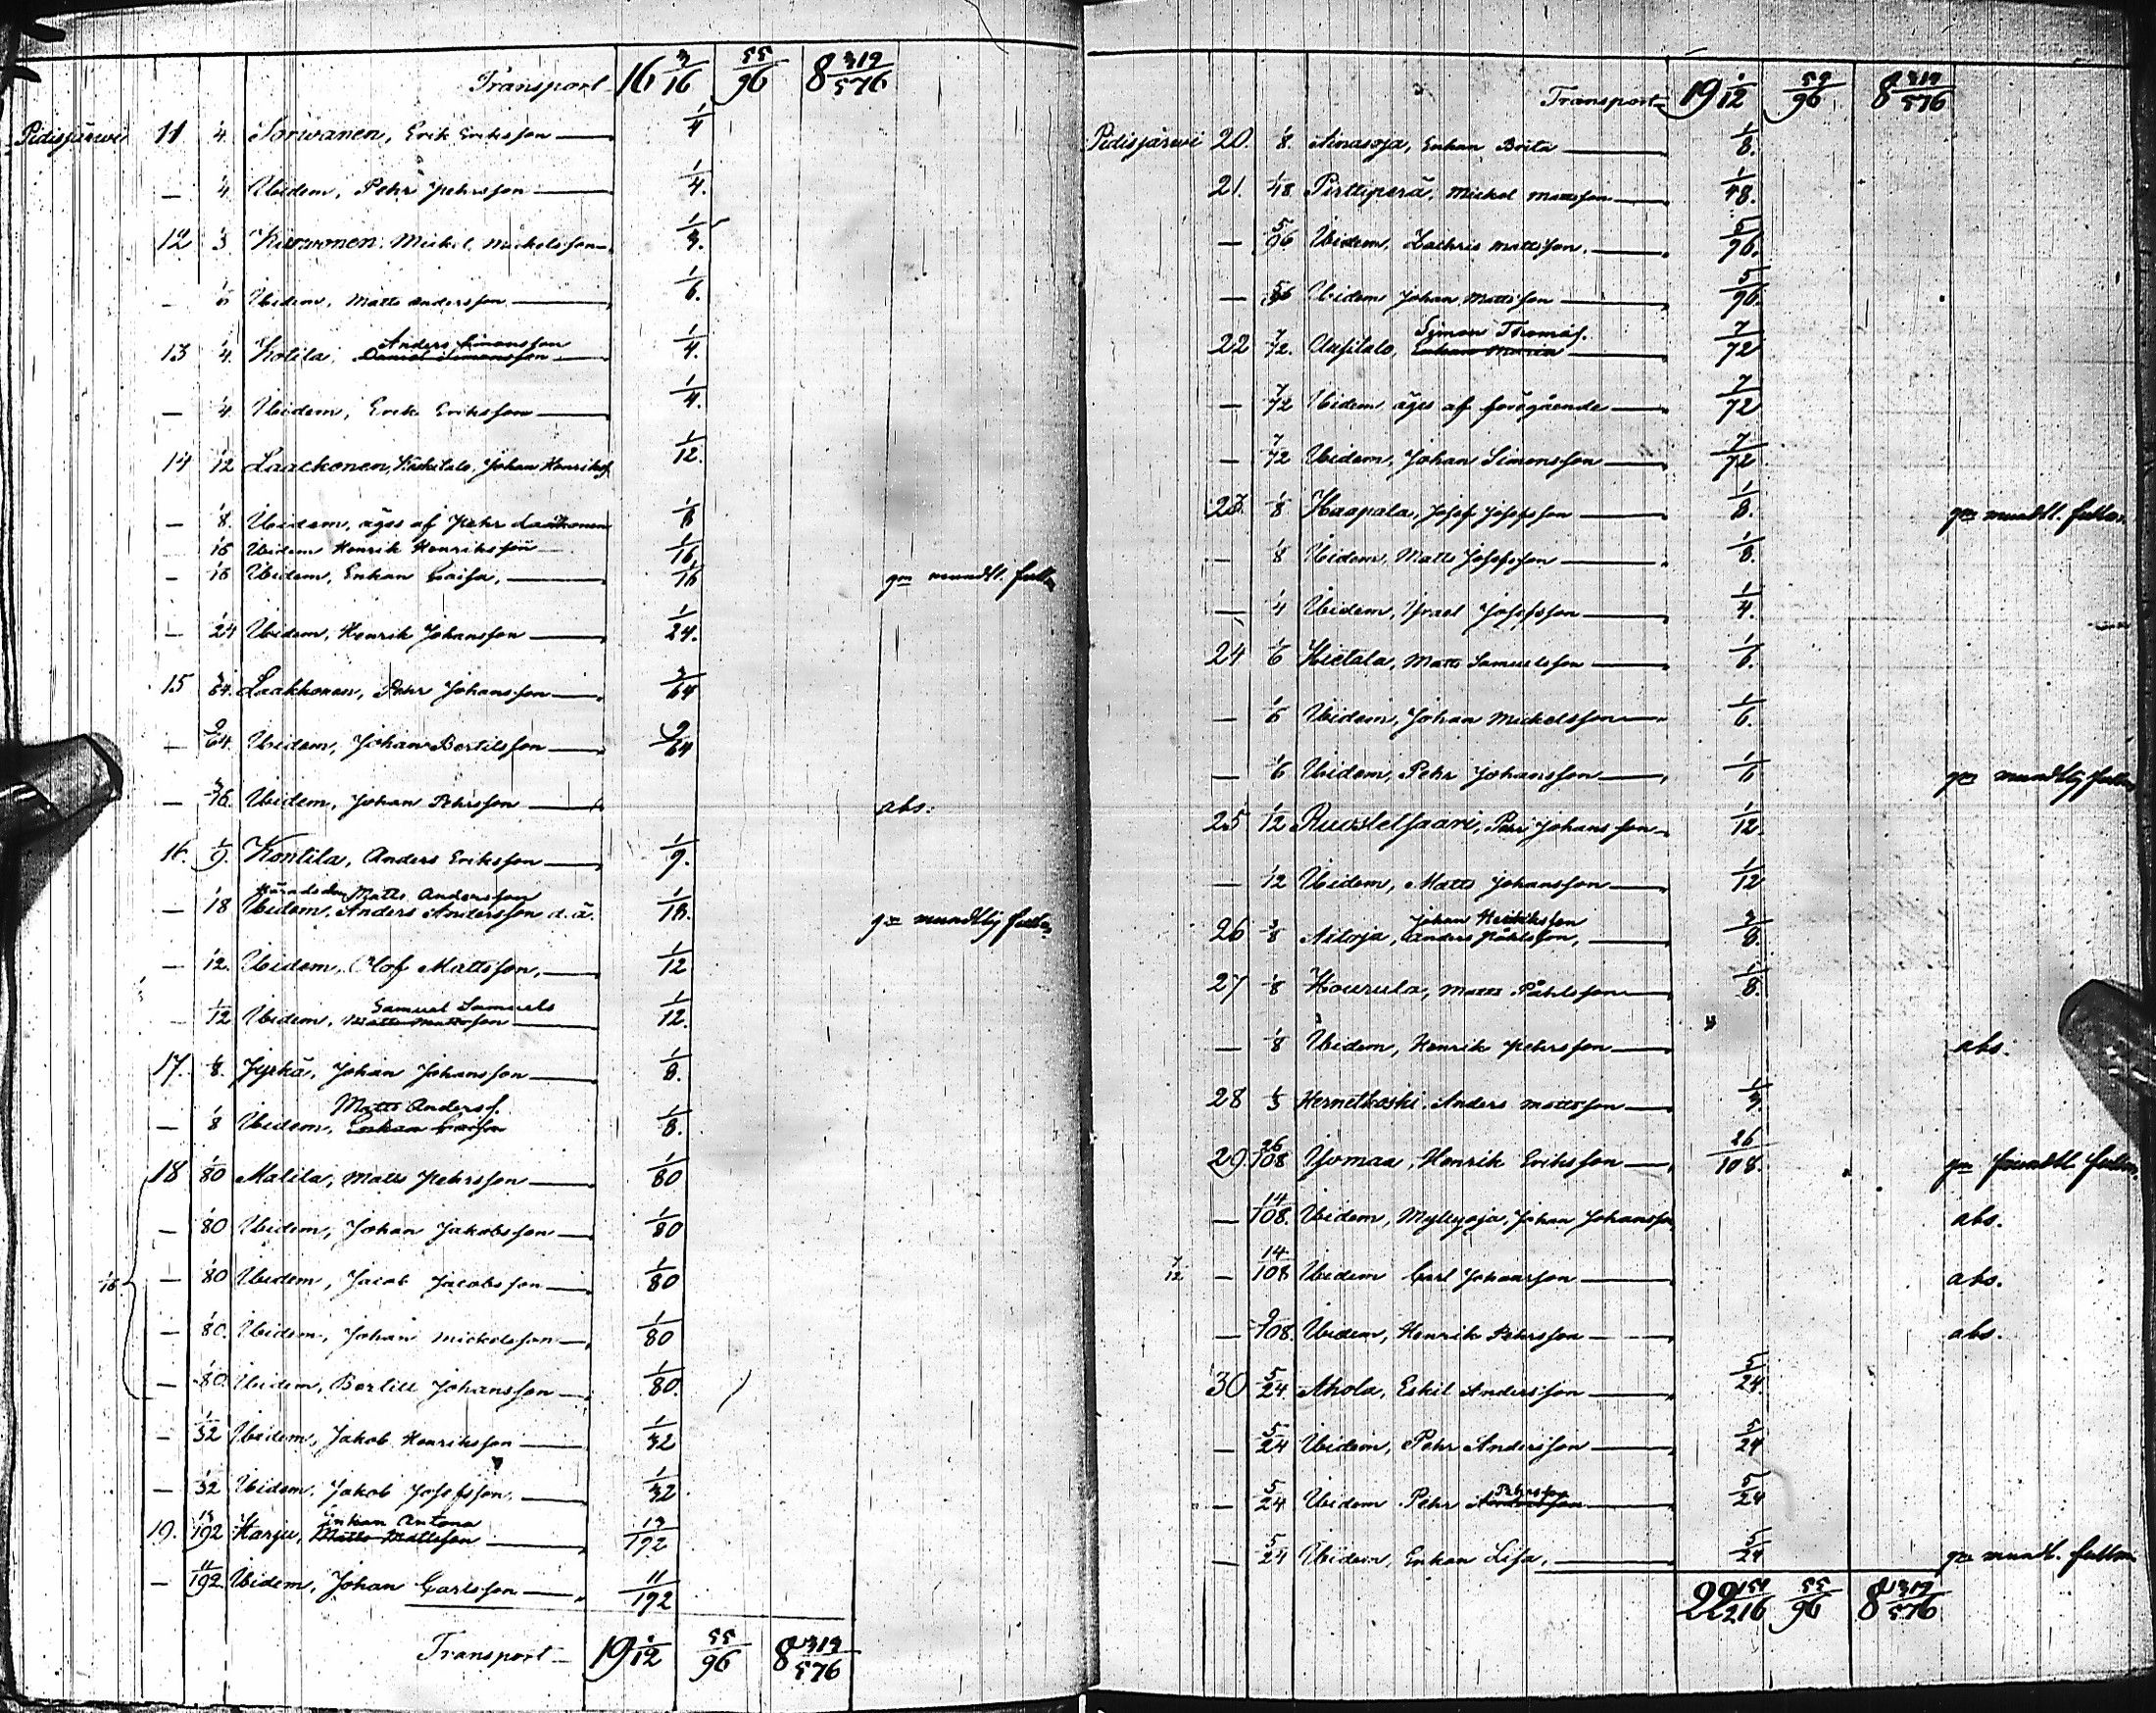 Transport 16 3/16 55/96 8 319/576
Pidisjärwi 11 1/4. Torwanen, Erik Eriksson 1/4
— 1/4 Ibidem, Pehr Pehrsson 1/4.
12 1/3 Kurwonen, Mickel Mickelsson 1/3.
— 1/6 Ibidem, Matts Andersson 1/6.
Anders Simonsson
13 1/4. Kotila, Daniel Simonsson 1/4.
— 1/4. Ibidem, Erik Eriksson 1/4.
14 1/12 Laackonen, Keskitalo, Johan Henrikss. 1/12.
— 1/8. Ibidem, äges af Pehr Laackonen 1/8
1/16 Ibidem Henrik Henriksson 1/16
— 1/16 Ibidem, Enkan Caisa, 1/16 gm mundtl. fullm
— 1/24 Ibidem, Henrik Johansson 1/24.
15 3/64. Laakkonen, Pehr Johansson 3/64
— 9/64. Ibidem, Johan Bertilsson 9/64
— 3/16. Ibidem, Johan Pehrsson abs.
16. 1/9. Kontila, Anders Eriksson 1/9.
Häradsdom Matts Andersson
— 1/18 Ibidem, Anders Andersson d.ä. 1/18. gm mundtlig fullm
— 1/12. Ibidem, Olof Mattsson, 1/12
Samuel Samuels
— 1/12 Ibidem, Matts Mattsson 1/12.
17. 1/8. Jyrkä, Johan Johansson 1/8.
Matts Anderss.
— 1/8 Ibidem, Enkan Caisa 1/8.
18 1/80 Malila, Matts Pehrsson 1/80
— 1/80 Ibidem, Johan Jakobsson 1/80
1/16 — 1/80 Ibidem, Jacob Jacobsson 1/80
— 1/80. Ibidem, Johan Mickelsson 1/80
— 1/80. Ibidem, Bertill Johansson 1/80.
— 1/32 Ibidem, Jakob Henriksson 1/32
— 1/32 Ibidem, Jakob Josefsson, 1/32
Enkan Antona
19. 13/192 Harju, Matts Mattsson 13/192
— 11/192 Ibidem, Johan Carlsson 11/192
Transport 19 1/12 55/96 8 319/576
Transport 19 1/12 55/96 8 319/576
Pidisjärwi 20. 1/8. Ainasoja, Enkan Brita 1/8.
21. 1/48 Pirttiperä, Mickel Mattsson 1/48.
— 5/96 Ibidem, Zachris Mattsson. 5/96.
— 5/96 Ibidem Johan Mattsson 5/96.
Simon Thomas.
22 7/72. Uusitalo, Enkan Maria 7/72
— 7/72 Ibidem äges af föregående 7/72
— 7/72 Ibidem, Johan Simonsson 7/72.
23. 1/8 Haapala, Josef Josefsson 1/8. gm mundtl. fullm.
— 1/8 Ibidem, Matts Josefsson 1/8.
— 1/4 Ibidem, Israel Josefsson 1/4.
24 1/6 Hietala, Matts Samuelsson 1/6.
— 1/6 Ibidem, Johan Mickelsson 1/6.
— 1/6 Ibidem, Pehr Johansson 1/6 gm mundtlig fullm
25 1/12 Ruostelsaari, Pehr Johansson 1/12.
— 1/12 Ibidem, Matts Johansson 1/12
Johan Henriksson
26 3/8 Aitoja, Anders Påhlsson, 3/8.
27 1/8 Hourula, Matts Påhlsson 1/8.
— 1/8 Ibidem, Henrik Pehrsson abs.
28 1/3 Hernetkoski, Anders Mattsson 1/3
29. 26/108 Yomaa, Henrik Eriksson 26/108. gm mundtl fullm.
— 14/108. Ibidem, Myllyoja, Johan Johansson abs.
7/12 — 14/108 Ibidem Carl Johansson abs.
— 9/108. Ibidem, Henrik Pehrsson abs.
30 5/24. Ahola, Eskil Andersson 5/24
— 5/24 Ibidem, Pehr Andersson 5/24
Pehrsson
— 5/24 Ibidem Pehr Andersson 5/24
— 5/24 Ibidem, Enkan Lisa, 5/24 gm mundl. fullm
22 159/216 55/96 8 319/576